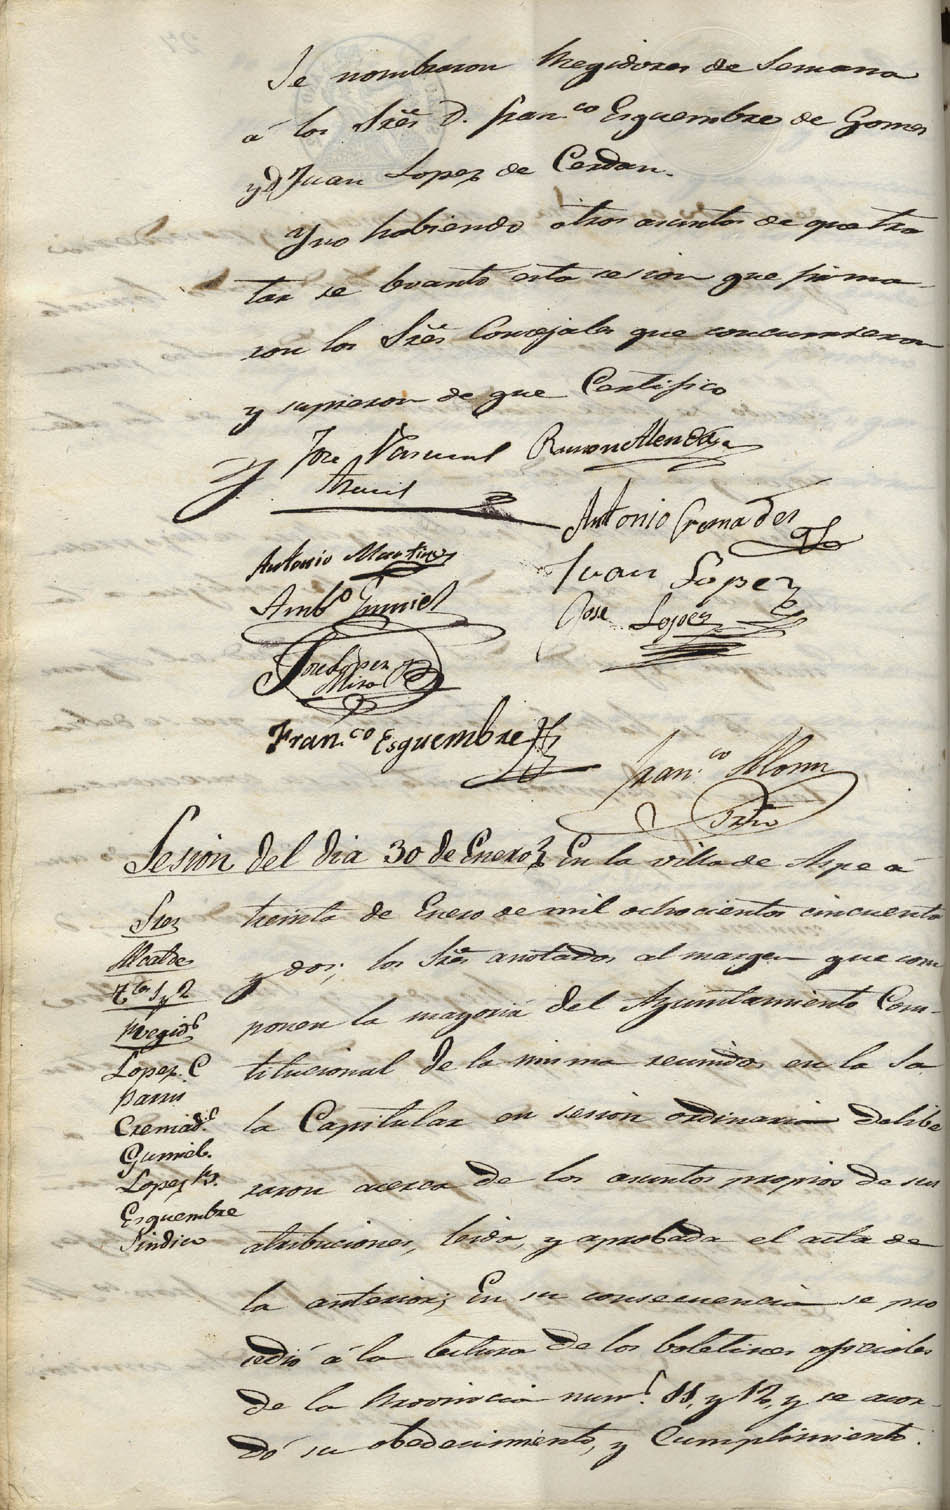 Se nombraron Regidores de Semana
á los Sres D. Fran.co Esquembre de Gomes
y D Juan Lopez de Cerdan.
Y no habiendo otros asuntos de que tra
tar se levantó esta sesion que firma
ron los Sres Concejales que concurrieron
y supieron de que Certifico
Jose Pascual
Ramon Alenda
Antonio Cremades
Antonio Martinez
Juan Lopez
Amb.o Gumiel
Jose Lopez
Jose Lopez
Mira
Fran.co Esquembre
Fran.co Alonso
Srio
Sesion del dia 30 de Enero
En la villa de Aspe á
treinta de Enero de mil ochocientos cincuenta
y dos; los Sres anotados al margen que com
ponen la mayoria del Ayuntamiento Cons-
titucional de la misma reunidos en la Sa
la Capitular en sesion ordinaria delibe
raron acerca de los asuntos propios de sus
atribuciones, leida, y aprobada el acta de
la anterior; En su consecuencia se pro
cedió á la lectura de los boletines oficiales
de la Provincia num.s 11, y 12, y se acor-
dó su obedecimiento, y Cumplimiento.
Sres
Alcalde
T.tes 1 y 2
Regid.s
Lopez C
Pavia
Cremad.s
Gumiel.
Lopez
Esquembre
Sindico